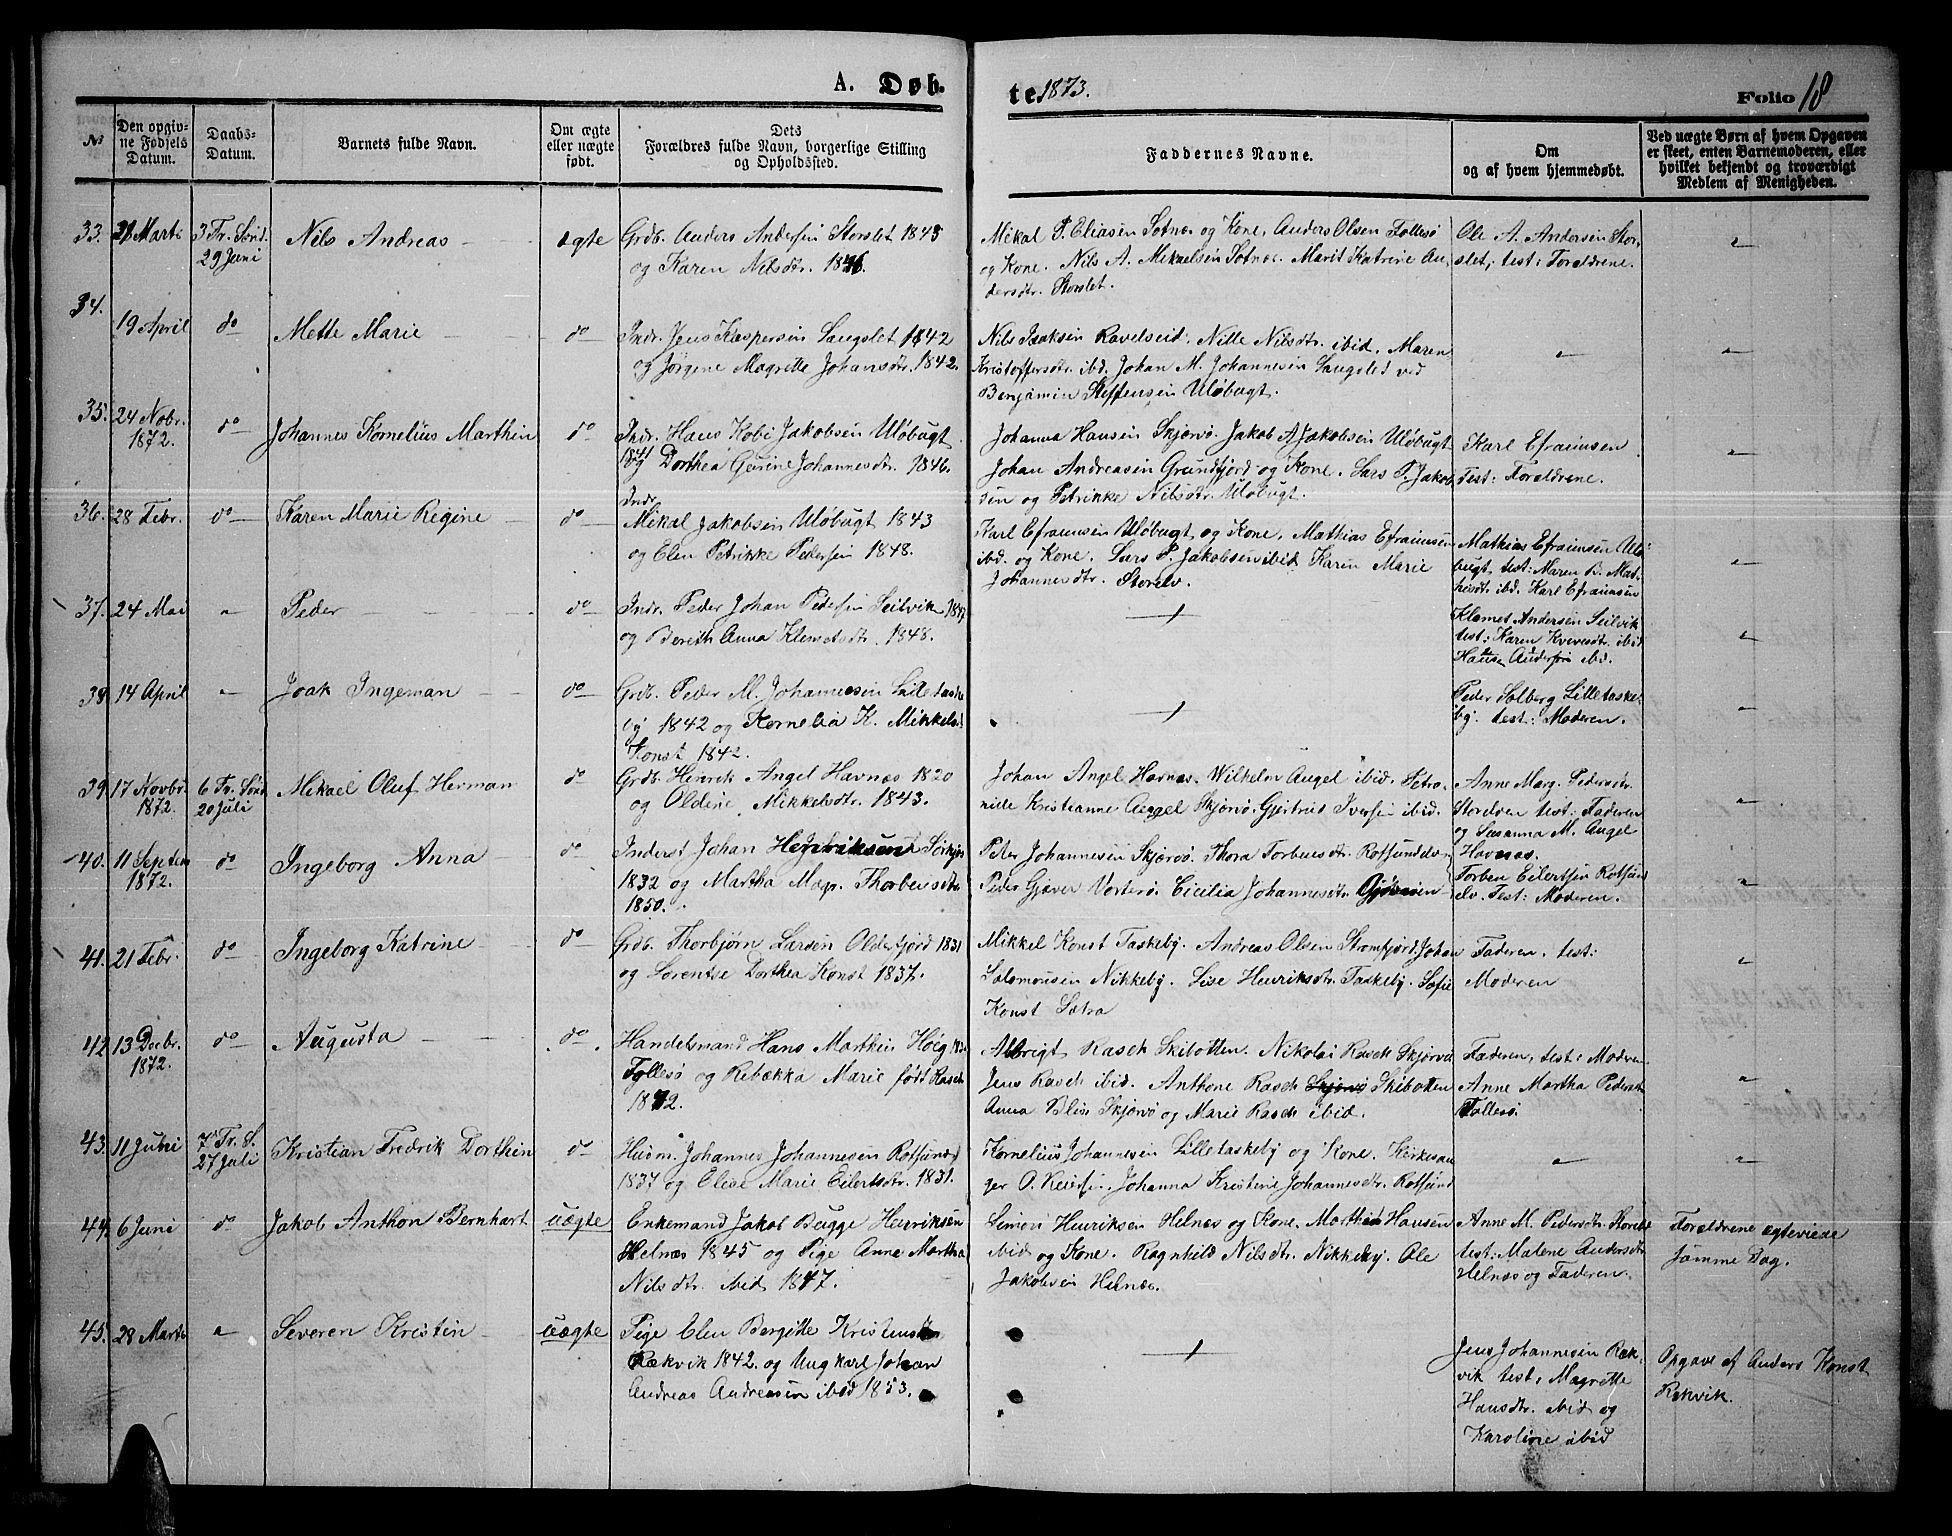 A. Døb-
te 1873.
Folio 18
No
Den opgivne Fødsels Datum.
Daabs-Datum.
Barnets fulde Navn.
Om ægte eller uægte født.
Dets Forældres fulde Navn, borgerlige Stilling og Opholdssted.
Faddernes Navne.
Om og af hvem hjemmedøbt.
Ved uægte Børn af hvem Opgaven er skeet, enten Barnemoderen, eller hvilket bekjendt og troværdigt Medlem af Menigheden.
33. Marts 3 Tr. Sønd. 29 Juni
Nils Andreas
ægte
Grdb. Anders Andersen Storslet 1843
og Karen Nilsdtr. 1846.
Mikal P. Eliasen Sotnæs og Kone, Anders Olsen Follesø
og Kone. Nils A. Mikaelsen Sotnæs. Marit Katrine An-
dersdtr. Storslet.
Ole A. Andersen Stor-
slet, test: Forældrene.
34. 19 April do
Mette Marie
do
Indr. Jens Kaspersen Langslet 1842
og Jørgine Magrette Johansdtr. 1842.
Nils Isaksen Ravelseid. Nille Nilsdtr. ibid. Maren
Kristoffersdtr. ibd. Johan M. Johannesen Langslet ved
Benjamin Steffensen Uløbugt.
35. 24 Nobr. 1872. do
Johannes Kornelius Marthin
do
Indr. Hans Kobi Jakobsen Uløbugt
1841 og Dorthea Gurine Johannesdtr. 1846.
Johanna Hansen Skjærvø. Jakob A Jakobsen Uløbugt
Johan Andreasen Grundfjord og Kone. Lars P. Jakob
sen og Petrikke Nilsdtr. Uløbugt.
Karl Efraimsen
Test: Forældrene.
36. 28 Febr. do
Karen Marie Regine
do
Indr.
Mikal Jakobsen Uløbugt 1843
og Elen Petrikke Pedersen 1848.
Karl Efraimsen Uløbugt og Kone, Mathias Efraimsen
ibd. og Kone. Lars P. Jakobsen ibid Karen Marie
Johannesdtr. Storelv.
Mathias Efraimsen Ulø-
bugt, test: Maren B. Mat-
hisdt. ibd. Karl Efraimsen
37. 24 Mai
Peder
do
Indr. Peder Johan Pedersen Seilvik 1847
og Bereth Anna Klemetsdtr. 1848.
Klemet Andersen Seilvik
test: Karen Kvevesdtr. ibid
Hans Andersen ibid.
38. 14 April
Joak Ingeman
do
Grdb. Peder M. Johannesen Lilletaske
by 1842 og Kornelia K. Mikkels.
Konst 1842.
Peder Solberg Lilletaske-
by. test: Moderen.
39. 17 Novbr. 1872. 6 Tr. Sønd. 20 Juli
Mikael Oluf Herman
do
Grdb. Henrik Angel Havnæs 1820
og Oldine Mikkelsdtr. 1843.
Johan Angel Havnæs. Wilhelm Angel ibid. Petro-
nille Kristianne Angel Skjærvø. Gjertrud Iversen ibid.
Anne Marg. Pedersdtr.
Storelven test: Faderen
og Susanna M. Angel
Havnæs.
40. 11 Septem 1872. do
Ingeborg Anna
do
Inderst Johan Henriksen Sørkjos
1832 og Martha Magr. Thorbensdtr.
1850.
Peter Johannesen Skjærvø. Thora Torbensdtr. Rotsundelv
Peder Gjæver Vorterø. Cicilia Johannesdtr.
Torben Eilertsen Rotsund
elv. Test: Moderen.
41. 21 Febr. do
Ingeborg Katrine
do
Grdb. Thorbjørn Larsen Olderfjord 1831
og Sørentse Dorthea Konst 1837.
Mikkel Konst Taskeby. Andreas Olsen Stromfjord. Johan
Salomonsen Nikkeby. Lise Henriksdtr. Taskeby. Sofie
Konst Løtra
Faderen, test:
Moderen
42. 13 Decbr. 1872. do
Augusta
do
Handelsmand Hans Marthin Høeg
Follesø og Rebækka Marie født Rasch
Albrigt Rasch Skibotten. Nikolai Rasch Skjærvø
Jens Rasch ibid. Anthone Rasch Skjærvø Skibotten
Anna Blix Skjærvø og Marie Rasch ibid.
Faderen, test: Moderen
Anne Martha Pedersdtr.
Follesø
43. 11 Juni 7 Tr. S. 27 Juli
Kristian Fredrik Dorthin
do
Husm. Johannes Johannesen Rotsund
1837 og Elise Marie Eilertsdtr. 1831.
Kornelius Johannesen Lilletaskeby og Kone. Kirkesan
ger O. Reiersen. Johanna Kristine Johannesdtr. Rotsund
44. 6 Juni do
Jakob Anthon Bernhart
uægte
Enkemand Jakob Bugge Henriksen
Helnæs 1845 og Pige Anne Martha
Nilsdtr. ibid 1847.
Simon Henriksen Helnæs og Kone. Marthin Hansen
ibid og Kone. Ragnhild Nilsdtr. Nikkeby. Ole
Jakobsen Helnæs.
Anne M. Pedersdtr.
test: Malene Andersdtr
Helnæs og Faderen.
Forældrene ægteviede
samme Dag.
45. 28 Marts
Severen Kristin
uægte
Pige Elen Bergitte Kristensdtr.
Rækvik 1842. og Ungkarl Johan
Andreas Andreasen ibid 1853.
Jens Johannesen Ræk-
vik test, Magrette
Hansdtr. ibid og
Karoline ibid
Opgave af Anders Konst
Rekvik.